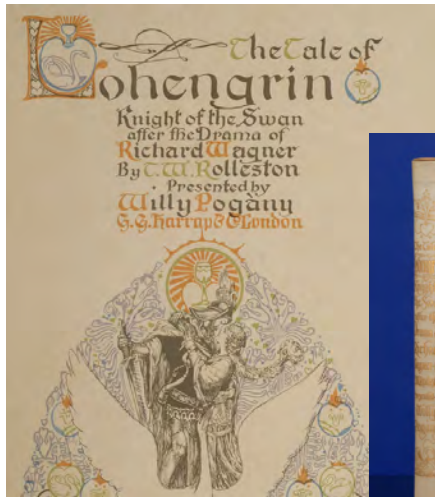 The Tale of
Lohengrin
Knight of the Swan
after the Drama of
Richard Wagner
By T.W. Rolleston
· Presented by
Willy Pogány
G. G. Harrap & Co London